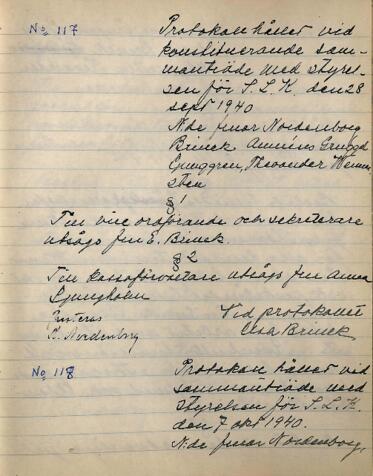 No 117
Protokoll hållet vid
konstituerande sam-
manträde med styrel-
sen för S.L.K. den 28
sept 1940
N.de fruar Nordenborg
Brinck Annines
Ljunggren, Thorander Wenner
sten
§ 1
Till vice ordförande och sekreterare
utsågs fru E. Brinck.
§ 2
Till kassaförvaltare utsågs fru Anna
Ljungholm
Vid protokollet
Justeras
Elsa Brinck
Nordenborg
No 118
Protokoll hållet vid
sammanträde med
styrelsen för S.L.K.
den 7 okt 1940.
N:de fruar Nordenborg,